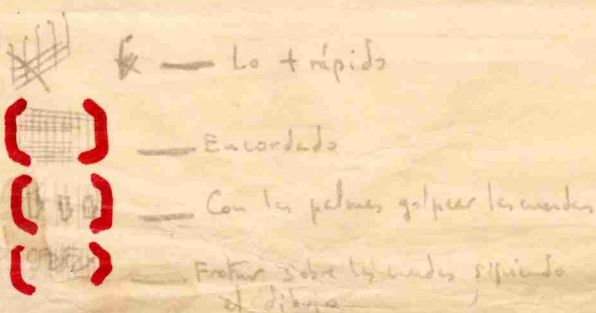 — Lo + rápido
— Encordado
— Con las palmas golpear las cuerdas
— Frotar sobre las cuerdas siguiendo
el dibujo